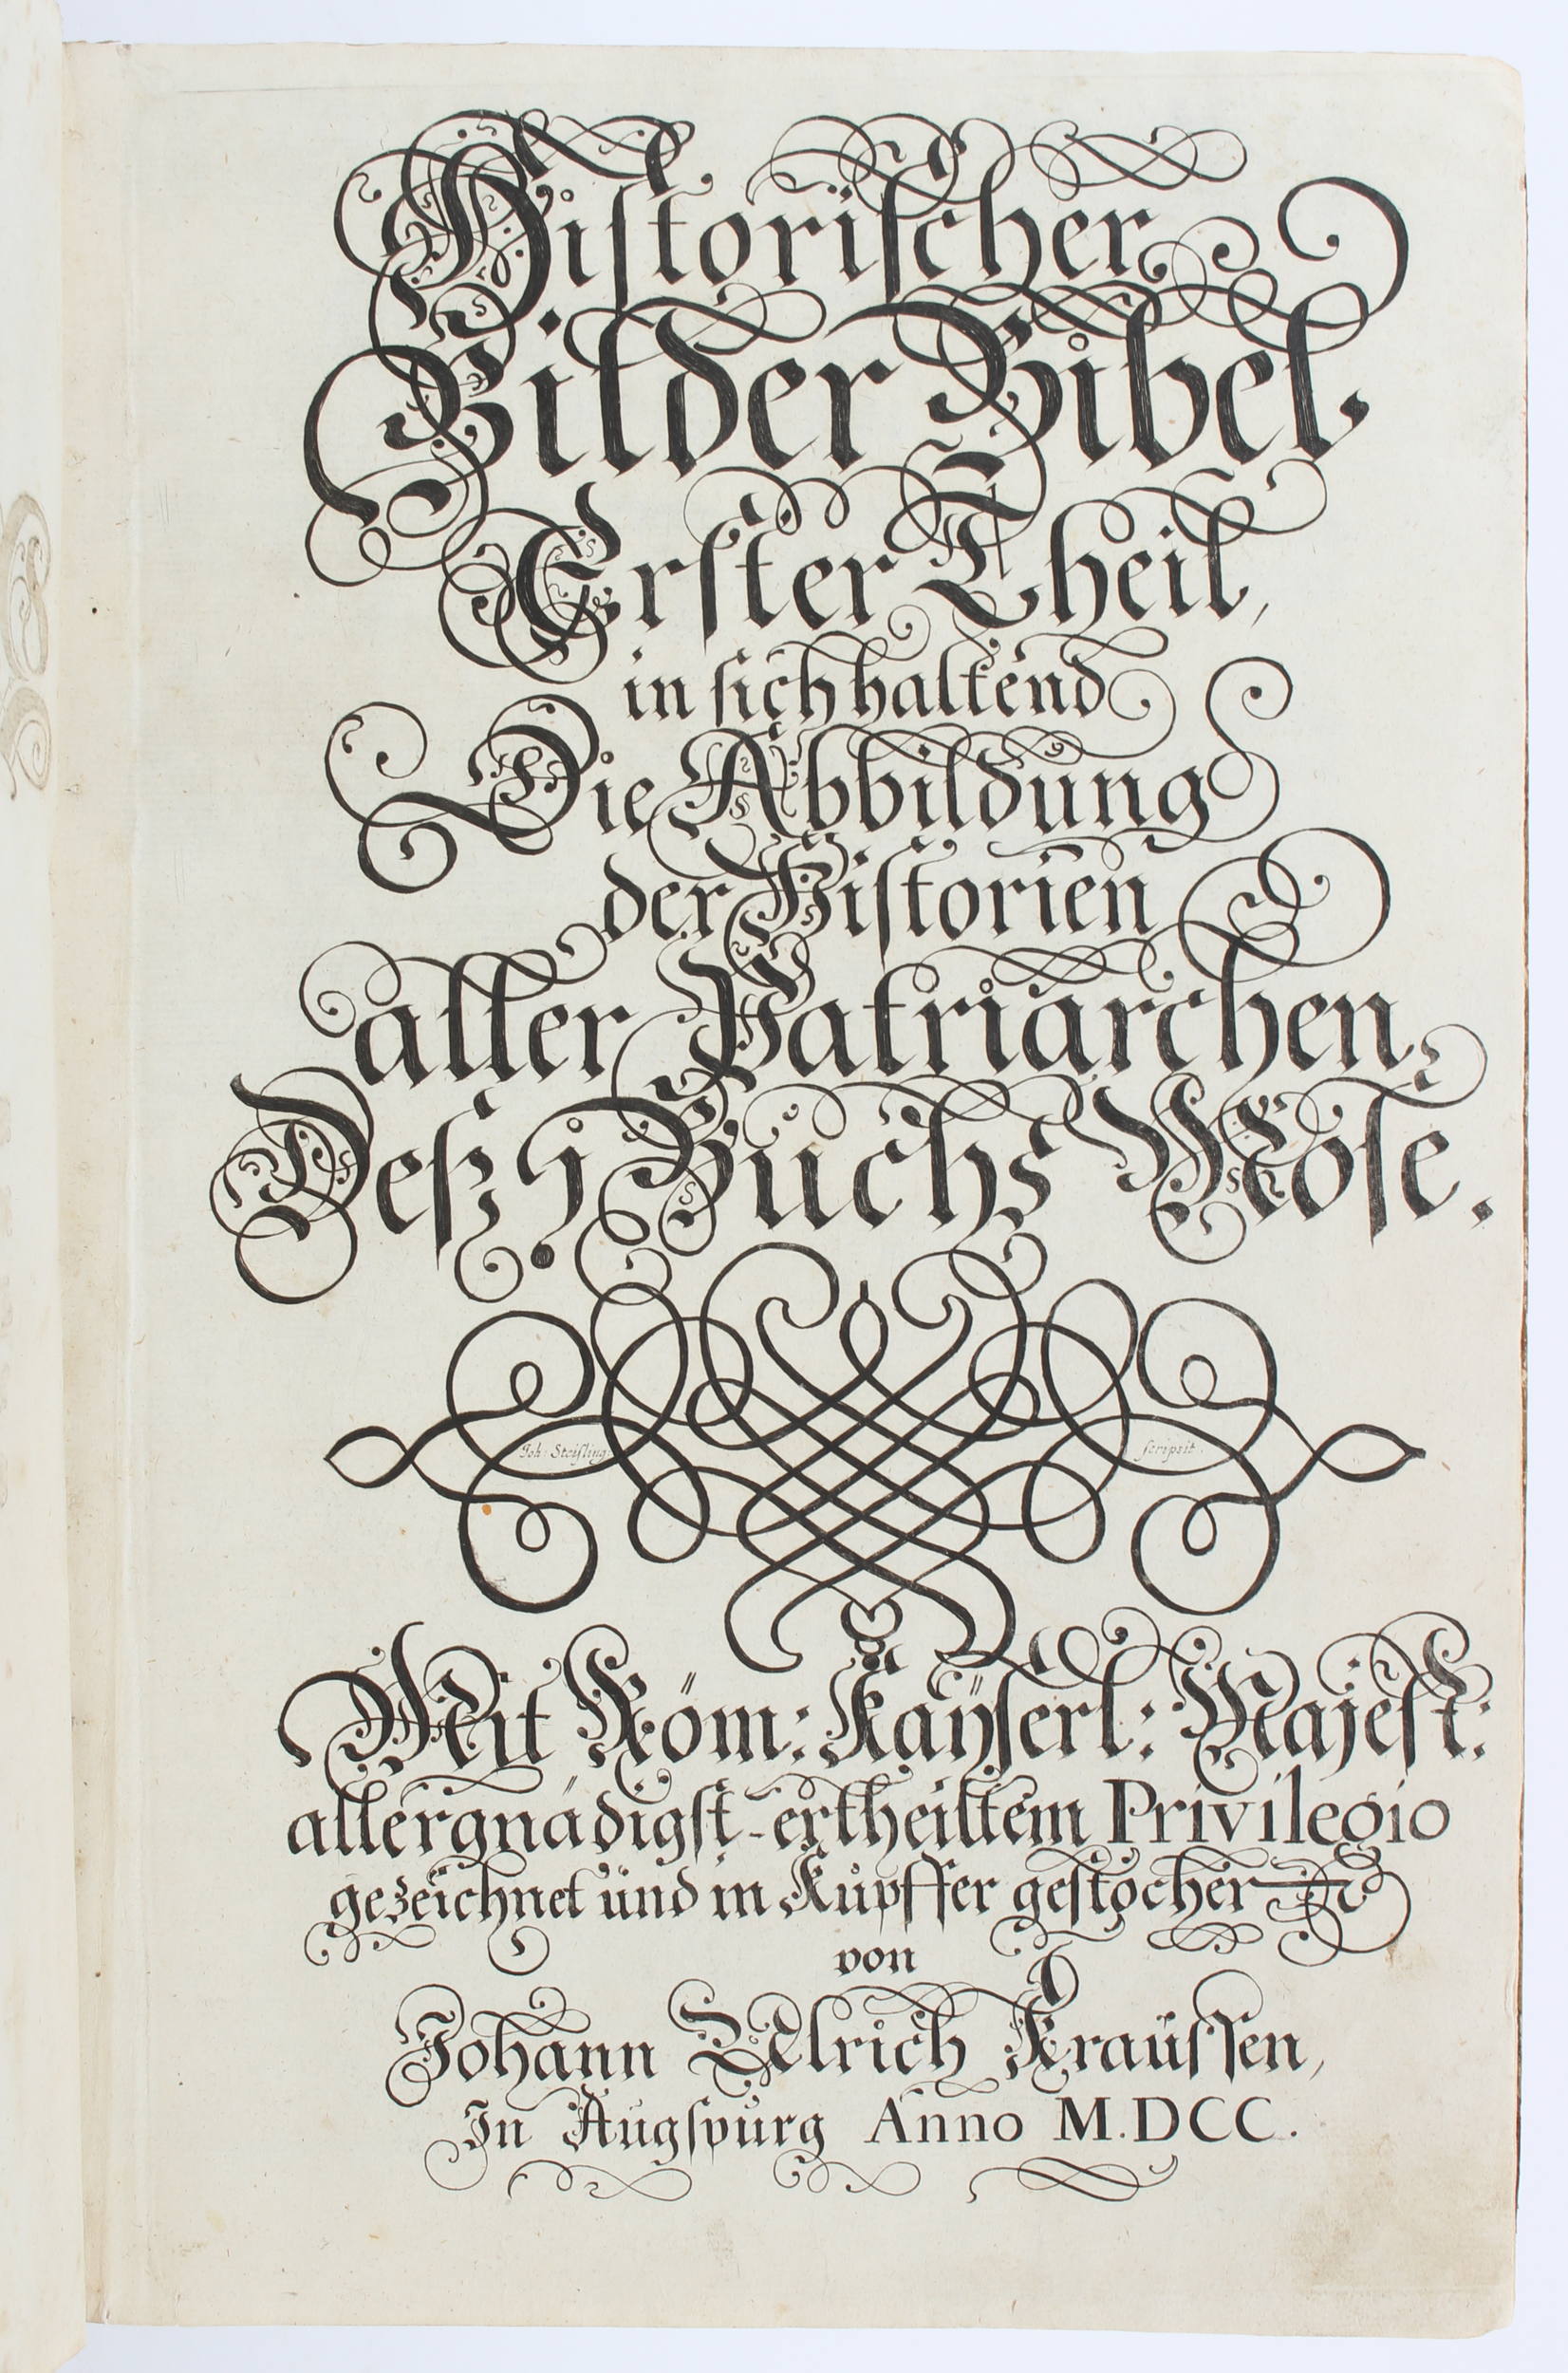 Historischer
Bilder Bibel.
Erster Theil,
in sich haltend
Die Abbildung
der Historien
aller Patriarchen,
Deß 1 Buchs Mose.
Joh: Steißling: scripsit.
Mit Röm: Kaÿserl: Majest:
allergnädigst-ertheiltem Privilegio
gezeichnet und in Kupffer gestochen
von
Johann Ulrich Kraussen,
In Augspurg Anno M.DCC.